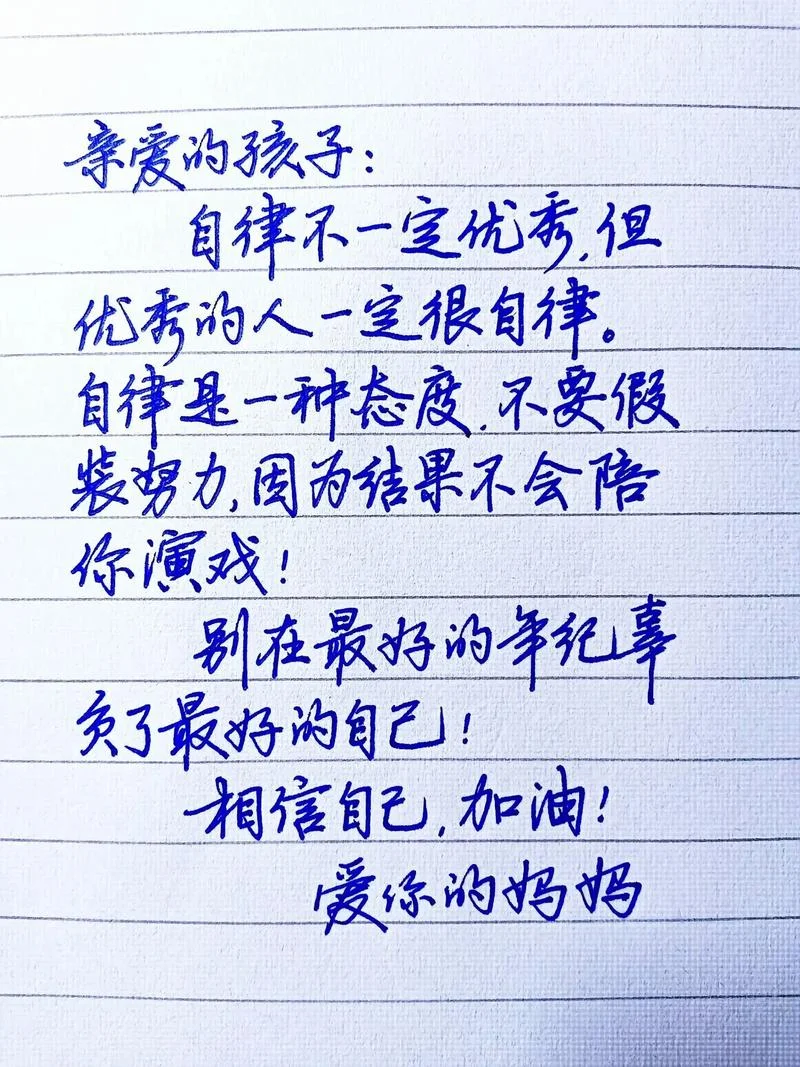 亲爱的孩子：
自律不一定优秀，但
优秀的人一定很自律。
自律是一种态度，不要假
装努力，因为结果不会陪
你演戏！
别在最好的年纪辜
负了最好的自己！
相信自己，加油！
爱你的妈妈